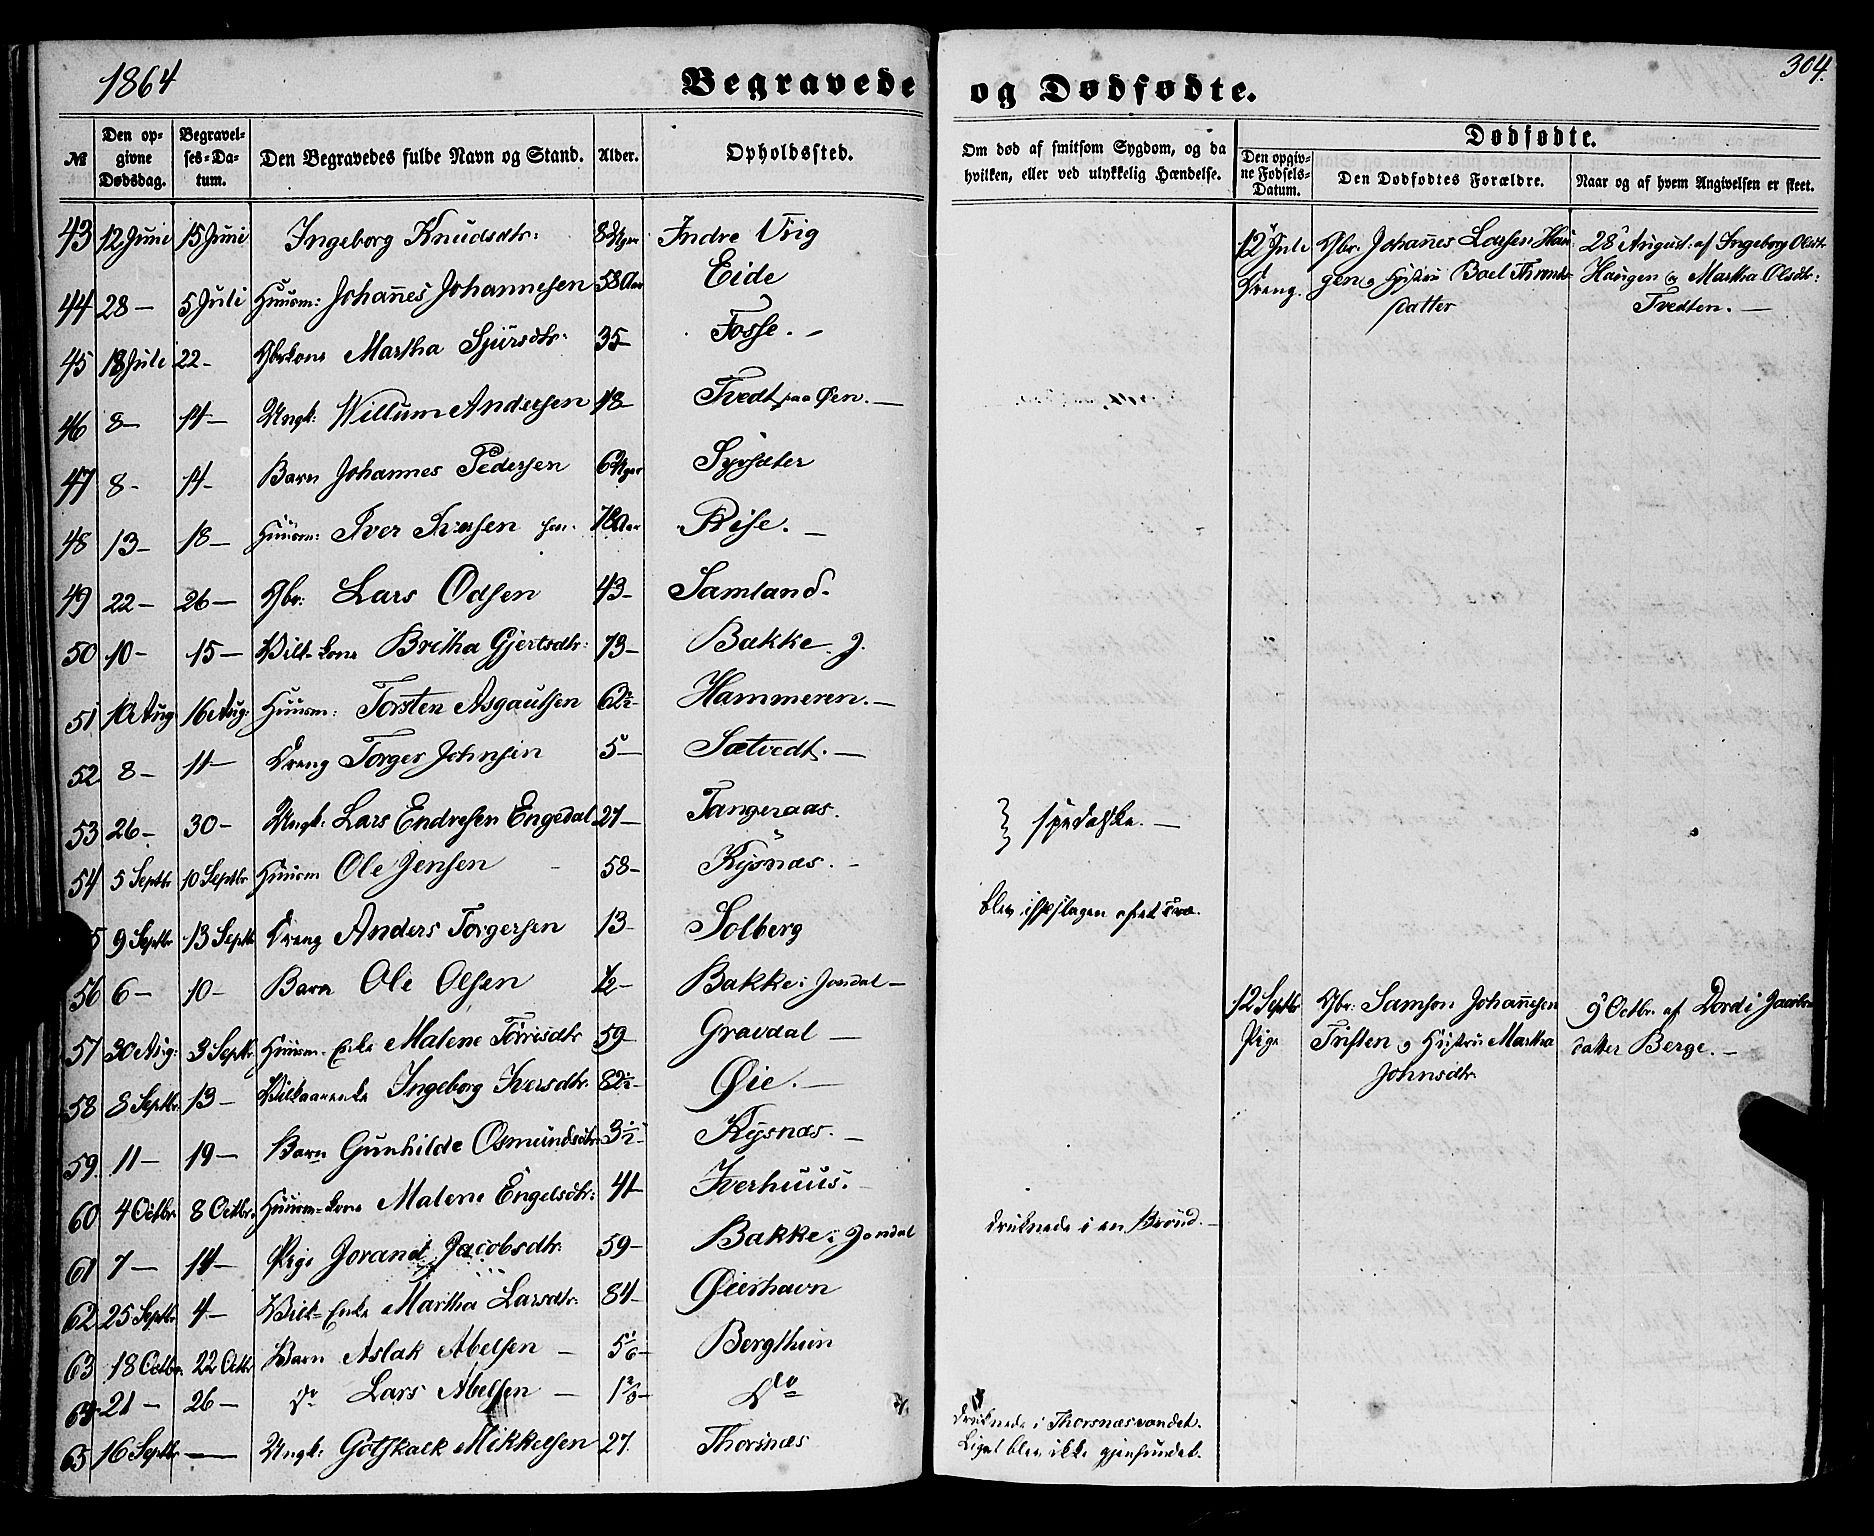 1864
Begravede og Dødfødte.
304.
№
Den opgivne Dødsdag.
Begravelses-Datum.
Den Begravedes fulde Navn og Stand.
Alder.
Opholdssted.
Om død af smitsom Sygdom, og da hvilken, eller ved ulykkelig Hændelse.
Dødfødte.
Den opgivne Fødsels-Datum.
Den Dødfødtes Forældre.
Naar og af hvem Angivelsen er skeet.
43 12 Juni 15 Juni Ingeborg Knudsdtr: 8 Uger Indre Vig
44 28 — 5 Juli Huusm: Johannes Johannesen 58 Aar Eide
45 18 Juli 22 - Gbrkone Martha Sjursdtr. 35 Fosse. -
46 8 — 14 — Ungk: Willum Andersen 18 Tvedt paa Øen. —
47 8 - 14 - Barn Johannes Pedersen 6 Uger
48 13 — 18 — Huusm: Iver Iversen sen. 78 Aar Rise. —
49 22 — 26 — Gbr: Lars Odsen 43 - Samland.
50 10 - 15 — Vilk. kone Britha Gjertsdtr: 73 - Bakke J.
51 10 Aug 16 Aug: Huusm: Torsten Asgautsen 62½ - Hammeren. —
52 8 — 11 — Dreng Torger Johnsen 5 — Sætvedt. —
53 26 — 30 — Ungk: Lars Endresen Engedal 27 — Tangeraas.
spedalske. —
54 5 Septbr 10 Septbr Huusm Ole Jensen 58 - Kysnæs. -
9 Septbr 13 Septb Dreng Anders Torgersen 13 - Solberg
blev ihjelslagen af et Træ.
56 6 — 10 - Barn Ole Olsen ½ - Bakke i Jondal —
57 30 Aug: 3 Septb. Huusm. Enke Malene Torrisdtr 59 Gravdal —
58 8 Septbr. 13 — Vilkaarenke Ingeborg Iversdtr. 82½ - Øie. —
59. 11 — 19 — Barn Gunhilde Osmundsdtr. 3½ - Kysnæs. —
60 4 Octbr. 8 Octbr. Huusm-kone Malene Engelsdtr: 41 Iverhuus.
61 7 — 14 — Pige Jorand Jacobsdtr. 59 - Bakke i Jondal
druknede i en Brønd. —
62 25 Septbr 4 — Vilk- Enke Martha Larsdtr. 84 - Øierhavn
63 18 Octbr. 22 Octbr Barn Aslak Abelsen — Bergthun
64 21 — 26 — Do Lars Abelsen — Do
65 16 Septbr. — Ungk: Gotskalk Mikkelsen 27. Thorsnæs
druknede i Thorsnæsvandet.
Liget blev ikke gjenfundet.
12 Juli Gbr. Johannes Larsen Hau- 28 August. af Ingeborg Olsdt.
Dreng. gen og Hustru Boel Thronds- Haugen og Martha Olsdtr:
datter Tvedten. —
12 Septbr Gbr: Samson Johannesen 9 Octbr. af Dordi
Pige og Hustru Martha datter Berge. —
Johnsdtr.